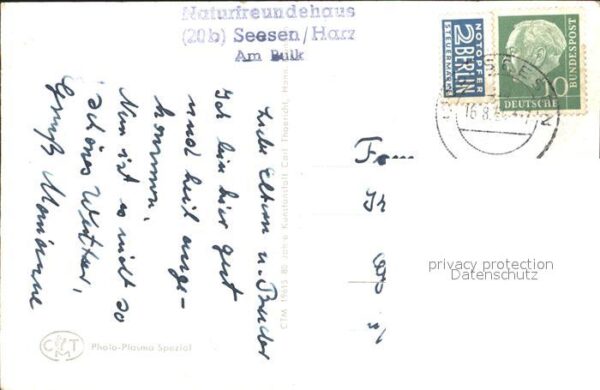 Naturfreundehaus
(20b) Seesen/Harz
Am Bulk
NOTOPFER
2 BERLIN
STEUERMARKE
DEUTSCHE
BUNDESPOST
10
16.8.
Liebe Eltern u. Bruder
Ich bin hier gut
und heil ange-
kommen.
Nun ist es nicht so
schönes Wetter.
Gruß Marianne
CTM 19615 80 Jahre Kunstanstalt Carl Thoericht, Hann
Fam
privacy protection
Datenschutz
CTM
Photo-Plasma Spezial